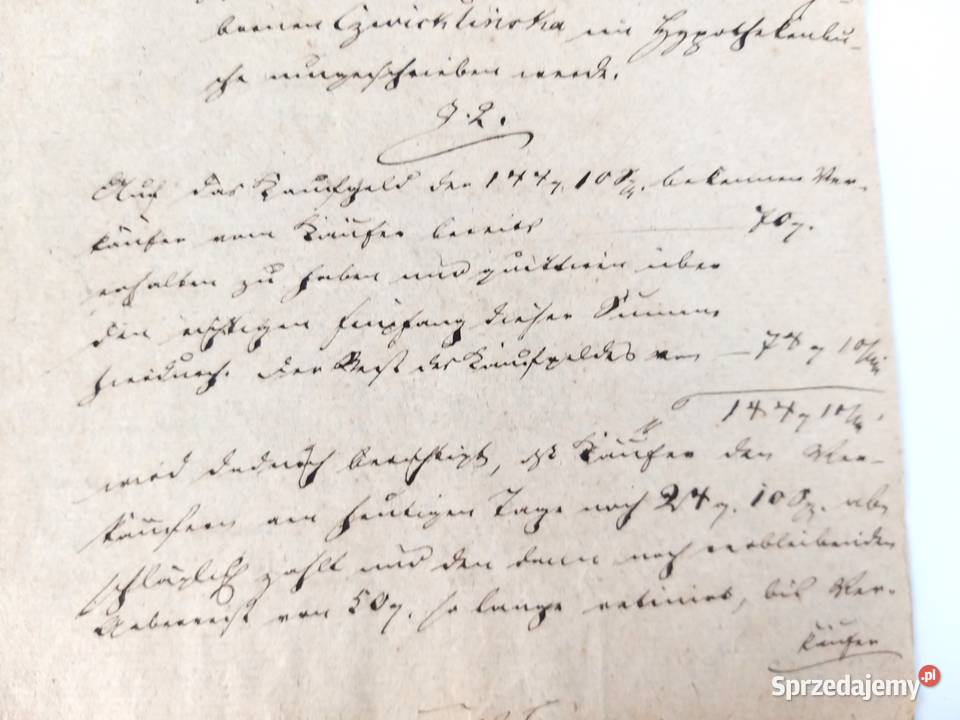 borenen Czwicklinska im Hypothekenbu-
che umgeschrieben werde.
§. 2.
Auf das Kaufgeld der 144 10 bekennen Ver-
käufer vom Käufer bereits — 70
erhalten zu haben und quittiren über
den richtigen Empfang dieser Summe
hierdurch. Der Rest des Kaufgeldes von — 74 10
144 10
wird dadurch berichtigt, daß Käufer den Ver-
käufern am heutigen Tage noch 24 10 ab-
schläglich zahlt und den dann noch verbleibenden
Ueberrest von 50 so lange retinirt, bis Ver-
käufer
Sprzedajemy.pl